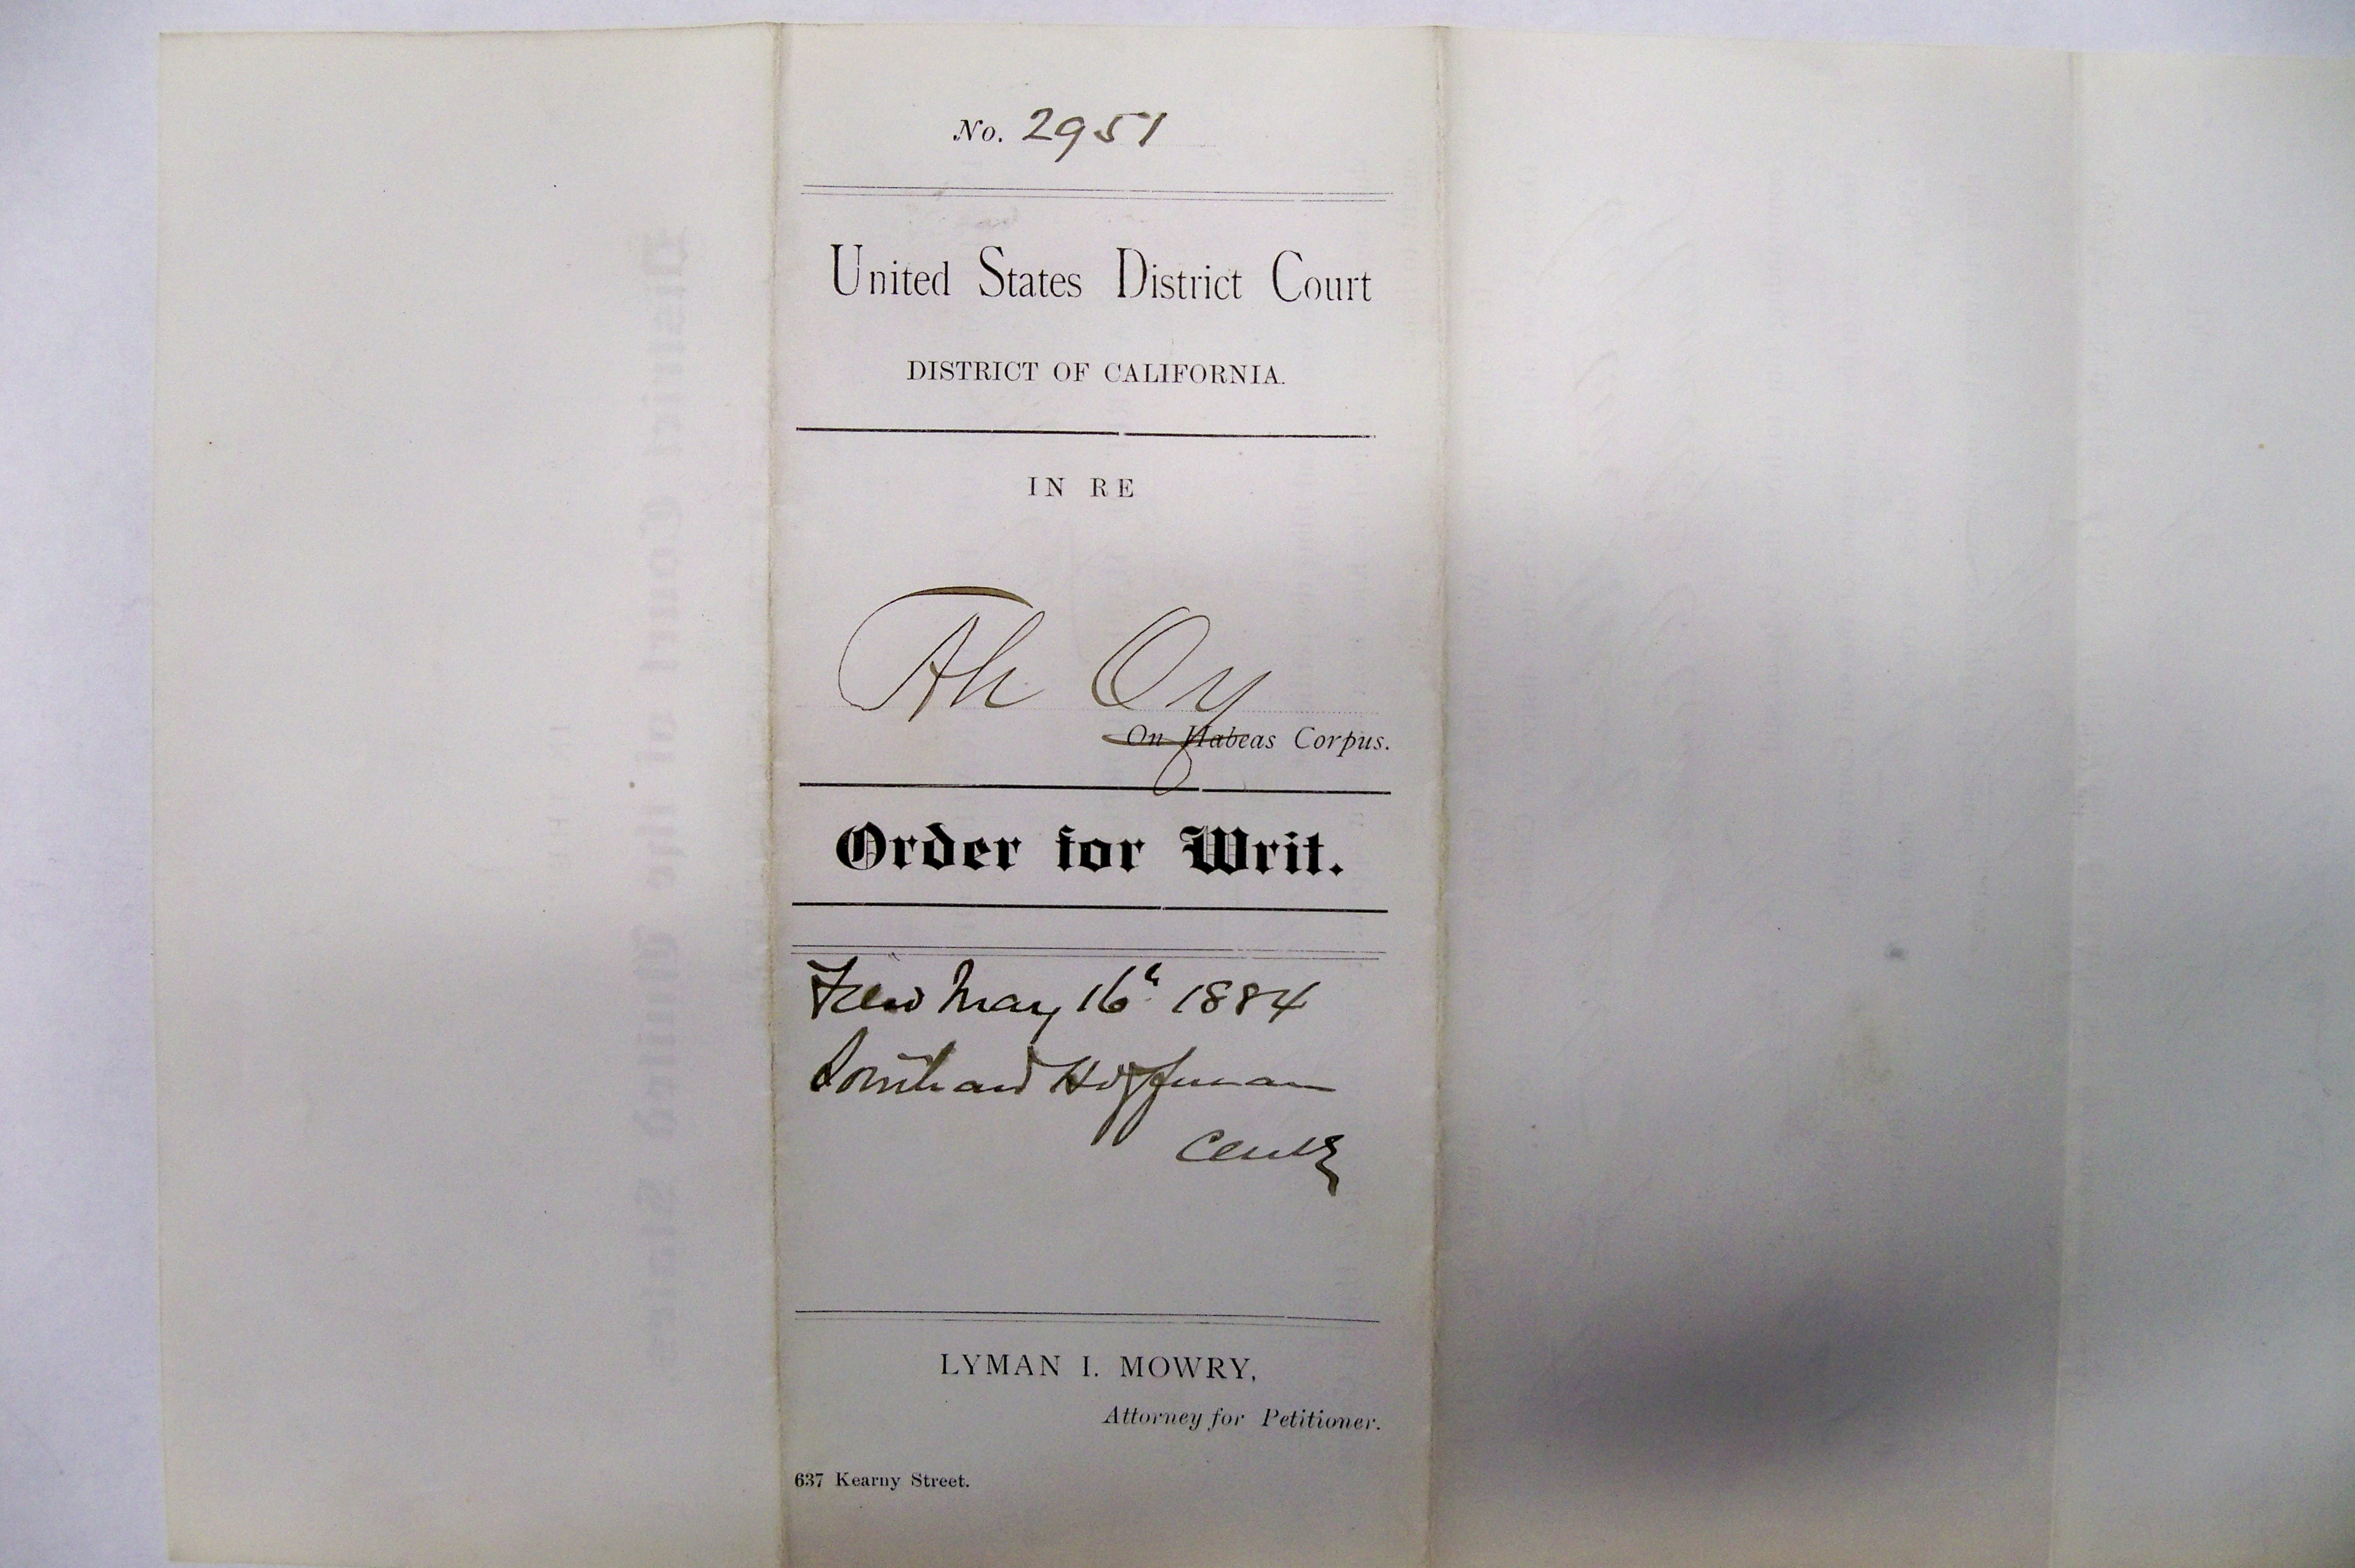 No. 2951
United States District Court
DISTRICT OF CALIFORNIA.
IN RE
Ah Oy
On Habeas Corpus.
Order for Writ.
Filed May 16th 1884
Southard Hoffman
Clerk
LYMAN I. MOWRY,
Attorney for Petitioner.
637 Kearny Street.